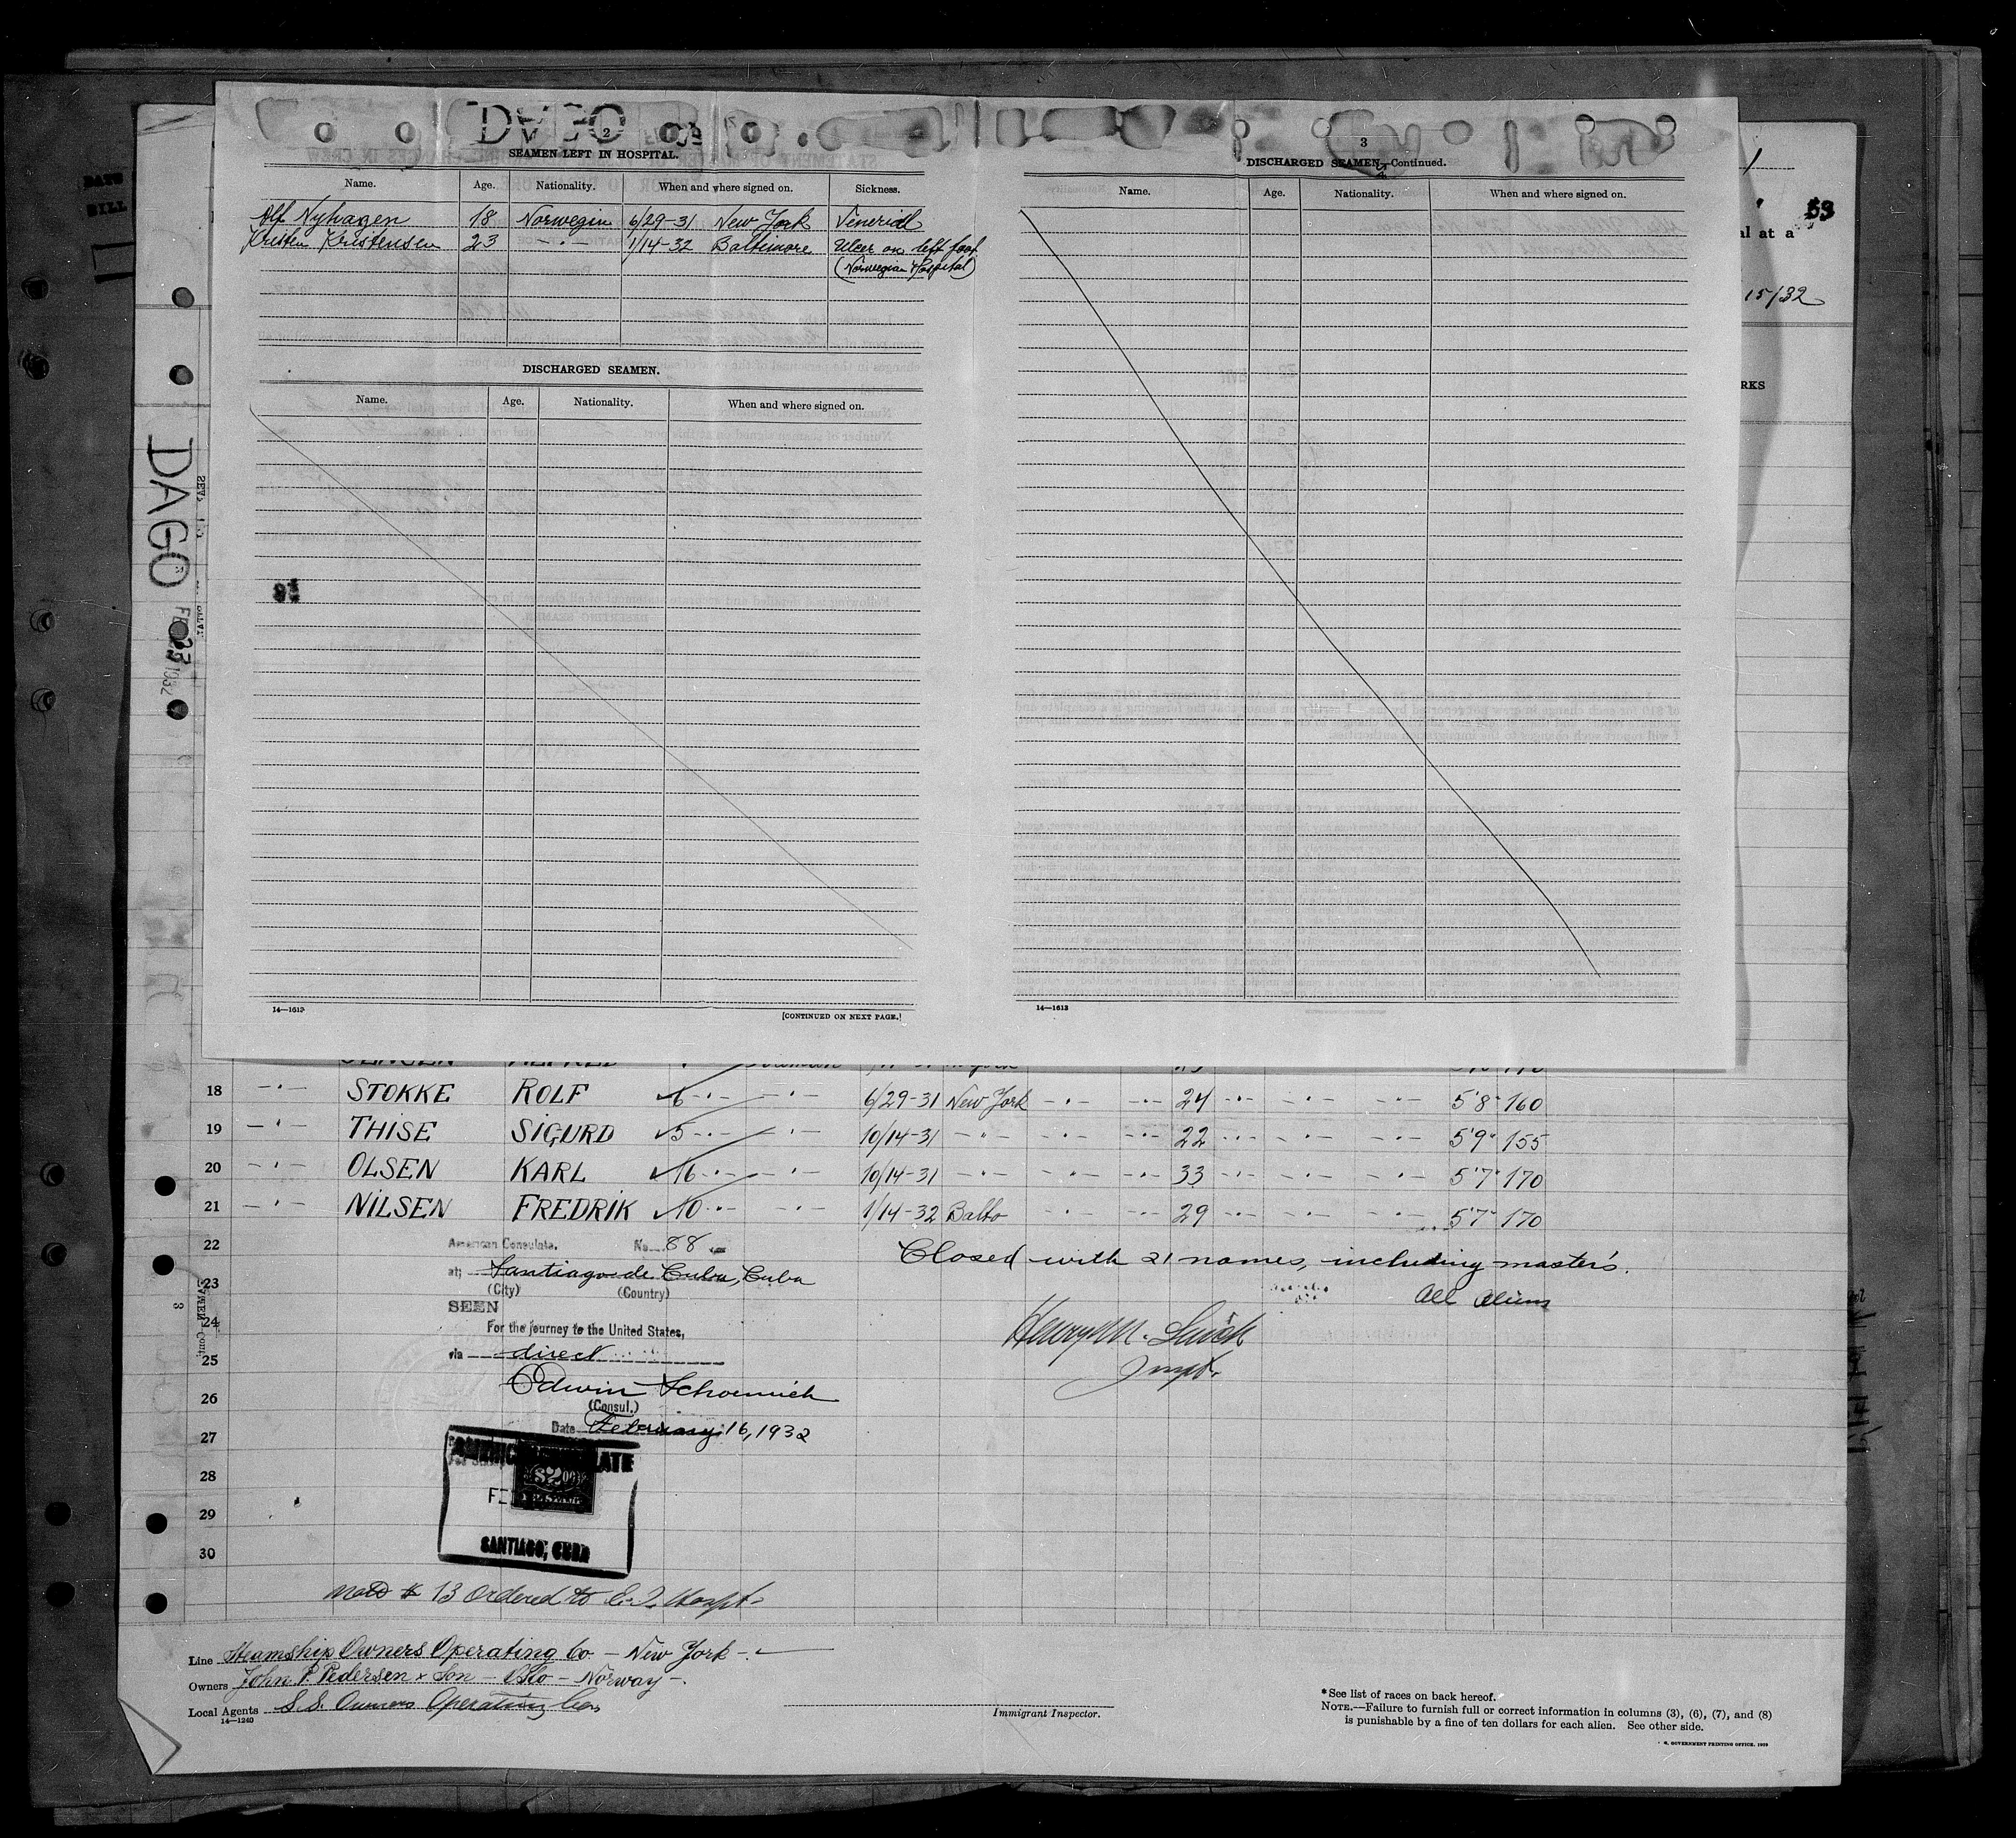 DAGO
2
SEAMEN LEFT IN HOSPITAL.
Name. Age. Nationality. When and where signed on. Sickness.
Alf Nyhagen 18 Norwegin 6/29-31 New York Veneridl
Kristen Kristensen 23 -"- 1/14-32 Baltimore Ulcer on left foot
(Norwegian Hospital)
DISCHARGED SEAMEN.
Name. Age. Nationality. When and where signed on.
14—1613
[CONTINUED ON NEXT PAGE.]
3
DISCHARGED SEAMEN—Continued.
Name. Age. Nationality. When and where signed on.
14—1613
53
al at a
15/32
RKS
DATE
BILL
DAGO
1932
18 -"- STOKKE ROLF 6 -"- -"- 6/29-31 New York -"- -"- 24 -"- -"- -"- 5'8" 160
19 -"- THISE SIGURD 5 -"- -"- 10/14-31 -"- -"- -"- 22 -"- -"- -"- 5'9" 155
20 -"- OLSEN KARL 16 -"- -"- 10/14-31 -"- -"- -"- 33 -"- -"- -"- 5'7" 170
21 -"- NILSEN FREDRIK 10 -"- -"- 1/14-32 Balto -"- -"- 29 -"- -"- -"- 5'7" 170
22
23
24
25
26
27
28
29
30
American Consulate. No. 88
at; Santiago de Cuba, Cuba
(City) (Country)
SEEN
For the journey to the United States,
via direct
Edwin Schoenrich
(Consul.)
Date February 16, 1932
AMERICAN CONSULATE
$2.00
SANTIAGO, CUBA
Closed with 21 names, including master's.
All aliens
Henry M.
Inspt.
# 13 ordered to E. I. Hospt.
Line Steamship Owners Operating Co — New York —
Owners John P. Pedersen & Son — Oslo — Norway —
Local Agents S.S. Owners Operating Co
14—1240
Immigrant Inspector.
* See list of races on back hereof.
NOTE.—Failure to furnish full or correct information in columns (3), (6), (7), and (8)
is punishable by a fine of ten dollars for each alien. See other side.
GOVERNMENT PRINTING OFFICE. 1929